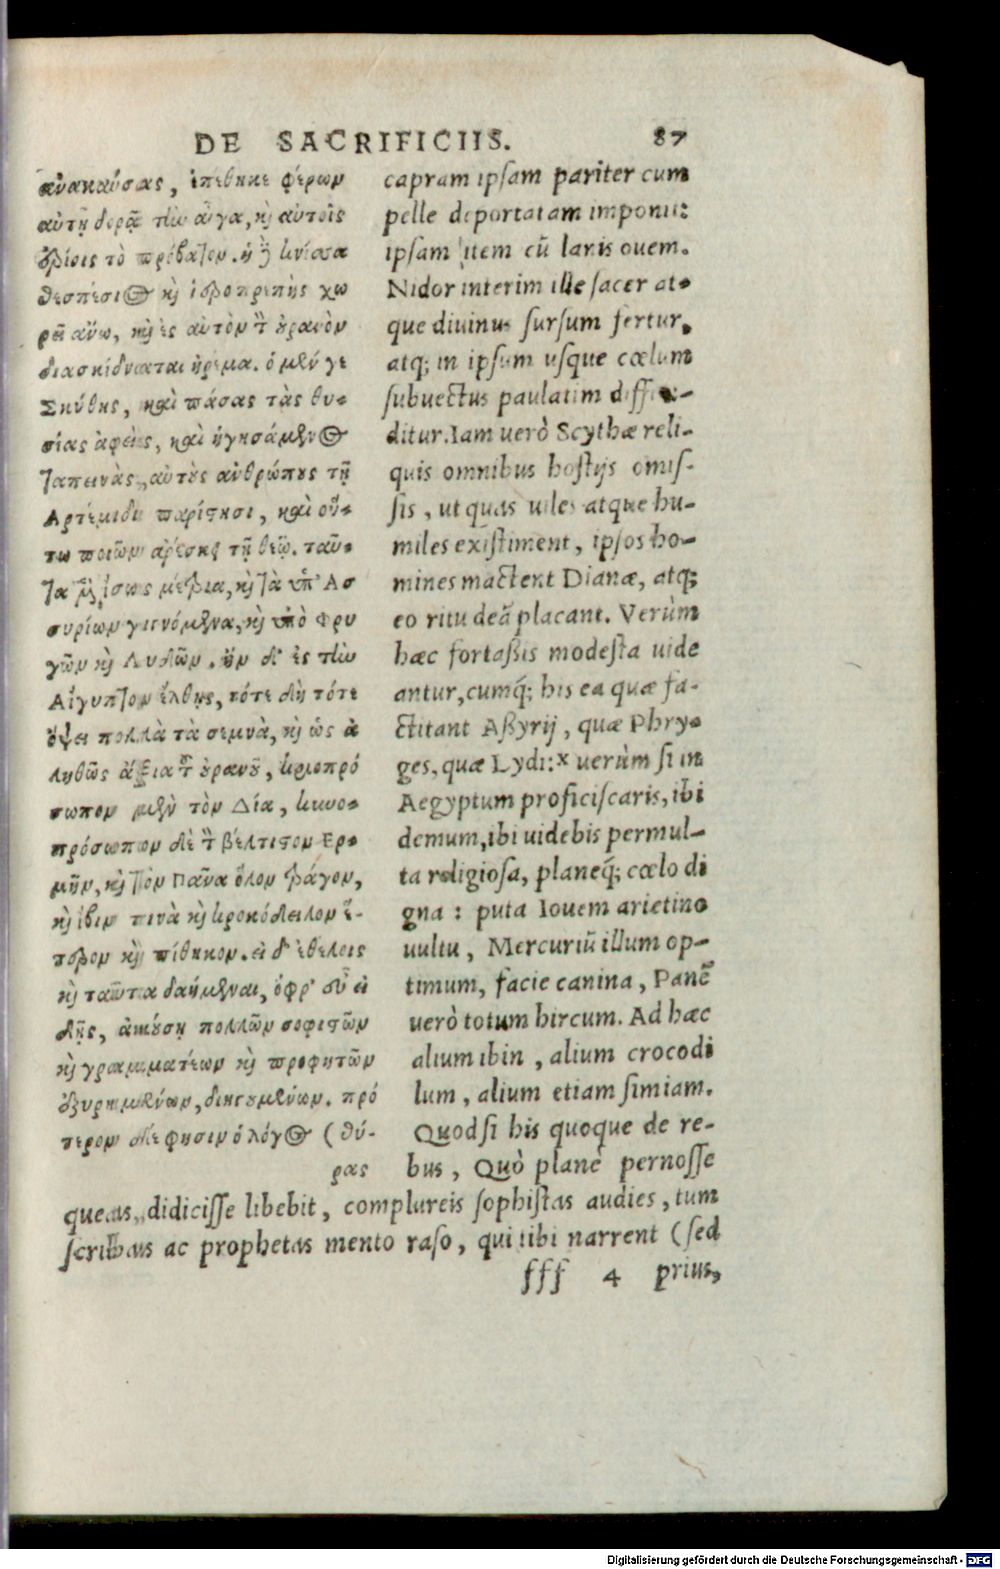 DE SACRIFICIIS. 87
ἀνακαύσας, ἐπέθηκε φέρων
αὐτῇ δορᾷ τὴν αἶγα, καὶ αὐτοῖς
ἐρίοις τὸ πρόβατον. ἡ δὲ κνίσσα
θεσπέσιος καὶ ἱεροπρεπὴς χω
ρεῖ ἄνω, καὶ ἐς αὐτὸν τὸν οὐρανὸν
διασκίδναται ἠρέμα. ὁ μέν γε
Σκύθης, καὶ πάσας τὰς θυ-
σίας ἀφεὶς, καὶ ἡγησάμενος
ταπεινὰς, αὐτοὺς ἀνθρώπους τῇ
Ἀρτέμιδι παρίστησι, καὶ οὕ-
τω ποιῶν ἀρέσκει τῇ θεῷ. ταῦ-
τα μὲν ἴσως μέτρια, καὶ τὰ ὑπ' Ἀσ
συρίων γιενόμενα, καὶ ὑπὸ Φρυ
γῶν καὶ Λυδῶν. ἢν δ' ἐς τὴν
Αἴγυπτον ἔλθῃς, τότε δὴ τότε
ὄψει πολλὰ τὰ σεμνὰ, καὶ ὡς ἀ
ληθῶς ἄξια τοῦ οὐρανοῦ, κριοπρό
σωπον μὲν τὸν Δία, κυνο-
πρόσωπον δὲ τὸν βέλτιστον Ἑρ-
μῆν, καὶ τὸν Πᾶνα ὅλον τράγον,
καὶ ἶβιν τινὰ καὶ κροκόδειλον ἕ-
τερον καὶ πίθηκον. εἰ δ' ἐθέλεις
καὶ ταῦτα δαήμεναι, ὄφρ' εὖ εἰ
δῇς, ἀκούσῃ πολλῶν σοφιστῶν
καὶ γραμματέων καὶ προφητῶν
ἐξυρημένων, διηγουμένων. πρό
τερον δέ φησιν ὁ λόγος (θύ-
ρας
capram ipsam pariter cum
pelle deportatam imponit:
ipsam item cũ lanis ouem.
Nidor interim ille sacer at-
que diuinus sursum fertur,
atq; in ipsum usque cœlum
subuectus paulatim diffun-
ditur. Iam uerò Scythæ reli-
quis omnibus hostijs omis-
sis, ut quas uiles atque hu-
miles existiment, ipsos ho-
mines mactent Dianæ, atq;
eo ritu deã placant. Verùm
hæc fortaßis modesta uide
antur, cumq́; his ea quæ fa-
ctitant Aßyrij, quæ Phry-
ges, quæ Lydi:× uerùm si in
Aegyptum proficiscaris, ibi
demum, ibi uidebis permul-
ta religiosa, planeq́; cœlo di
gna: puta Iouem arietino
uultu, Mercuriũ illum op-
timum, facie canina, Panẽ
uerò totum hircum. Ad hæc
alium ibin, alium crocodi
lum, alium etiam simiam.
Quod si his quoque de re-
bus, Quò planè pernosse
queas, didicisse libebit, complureis sophistas audies, tum
scribas ac prophetas mento raso, qui tibi narrent (sed
fff 4 prius,
Digitalisierung gefördert durch die Deutsche Forschungsgemeinschaft - DFG